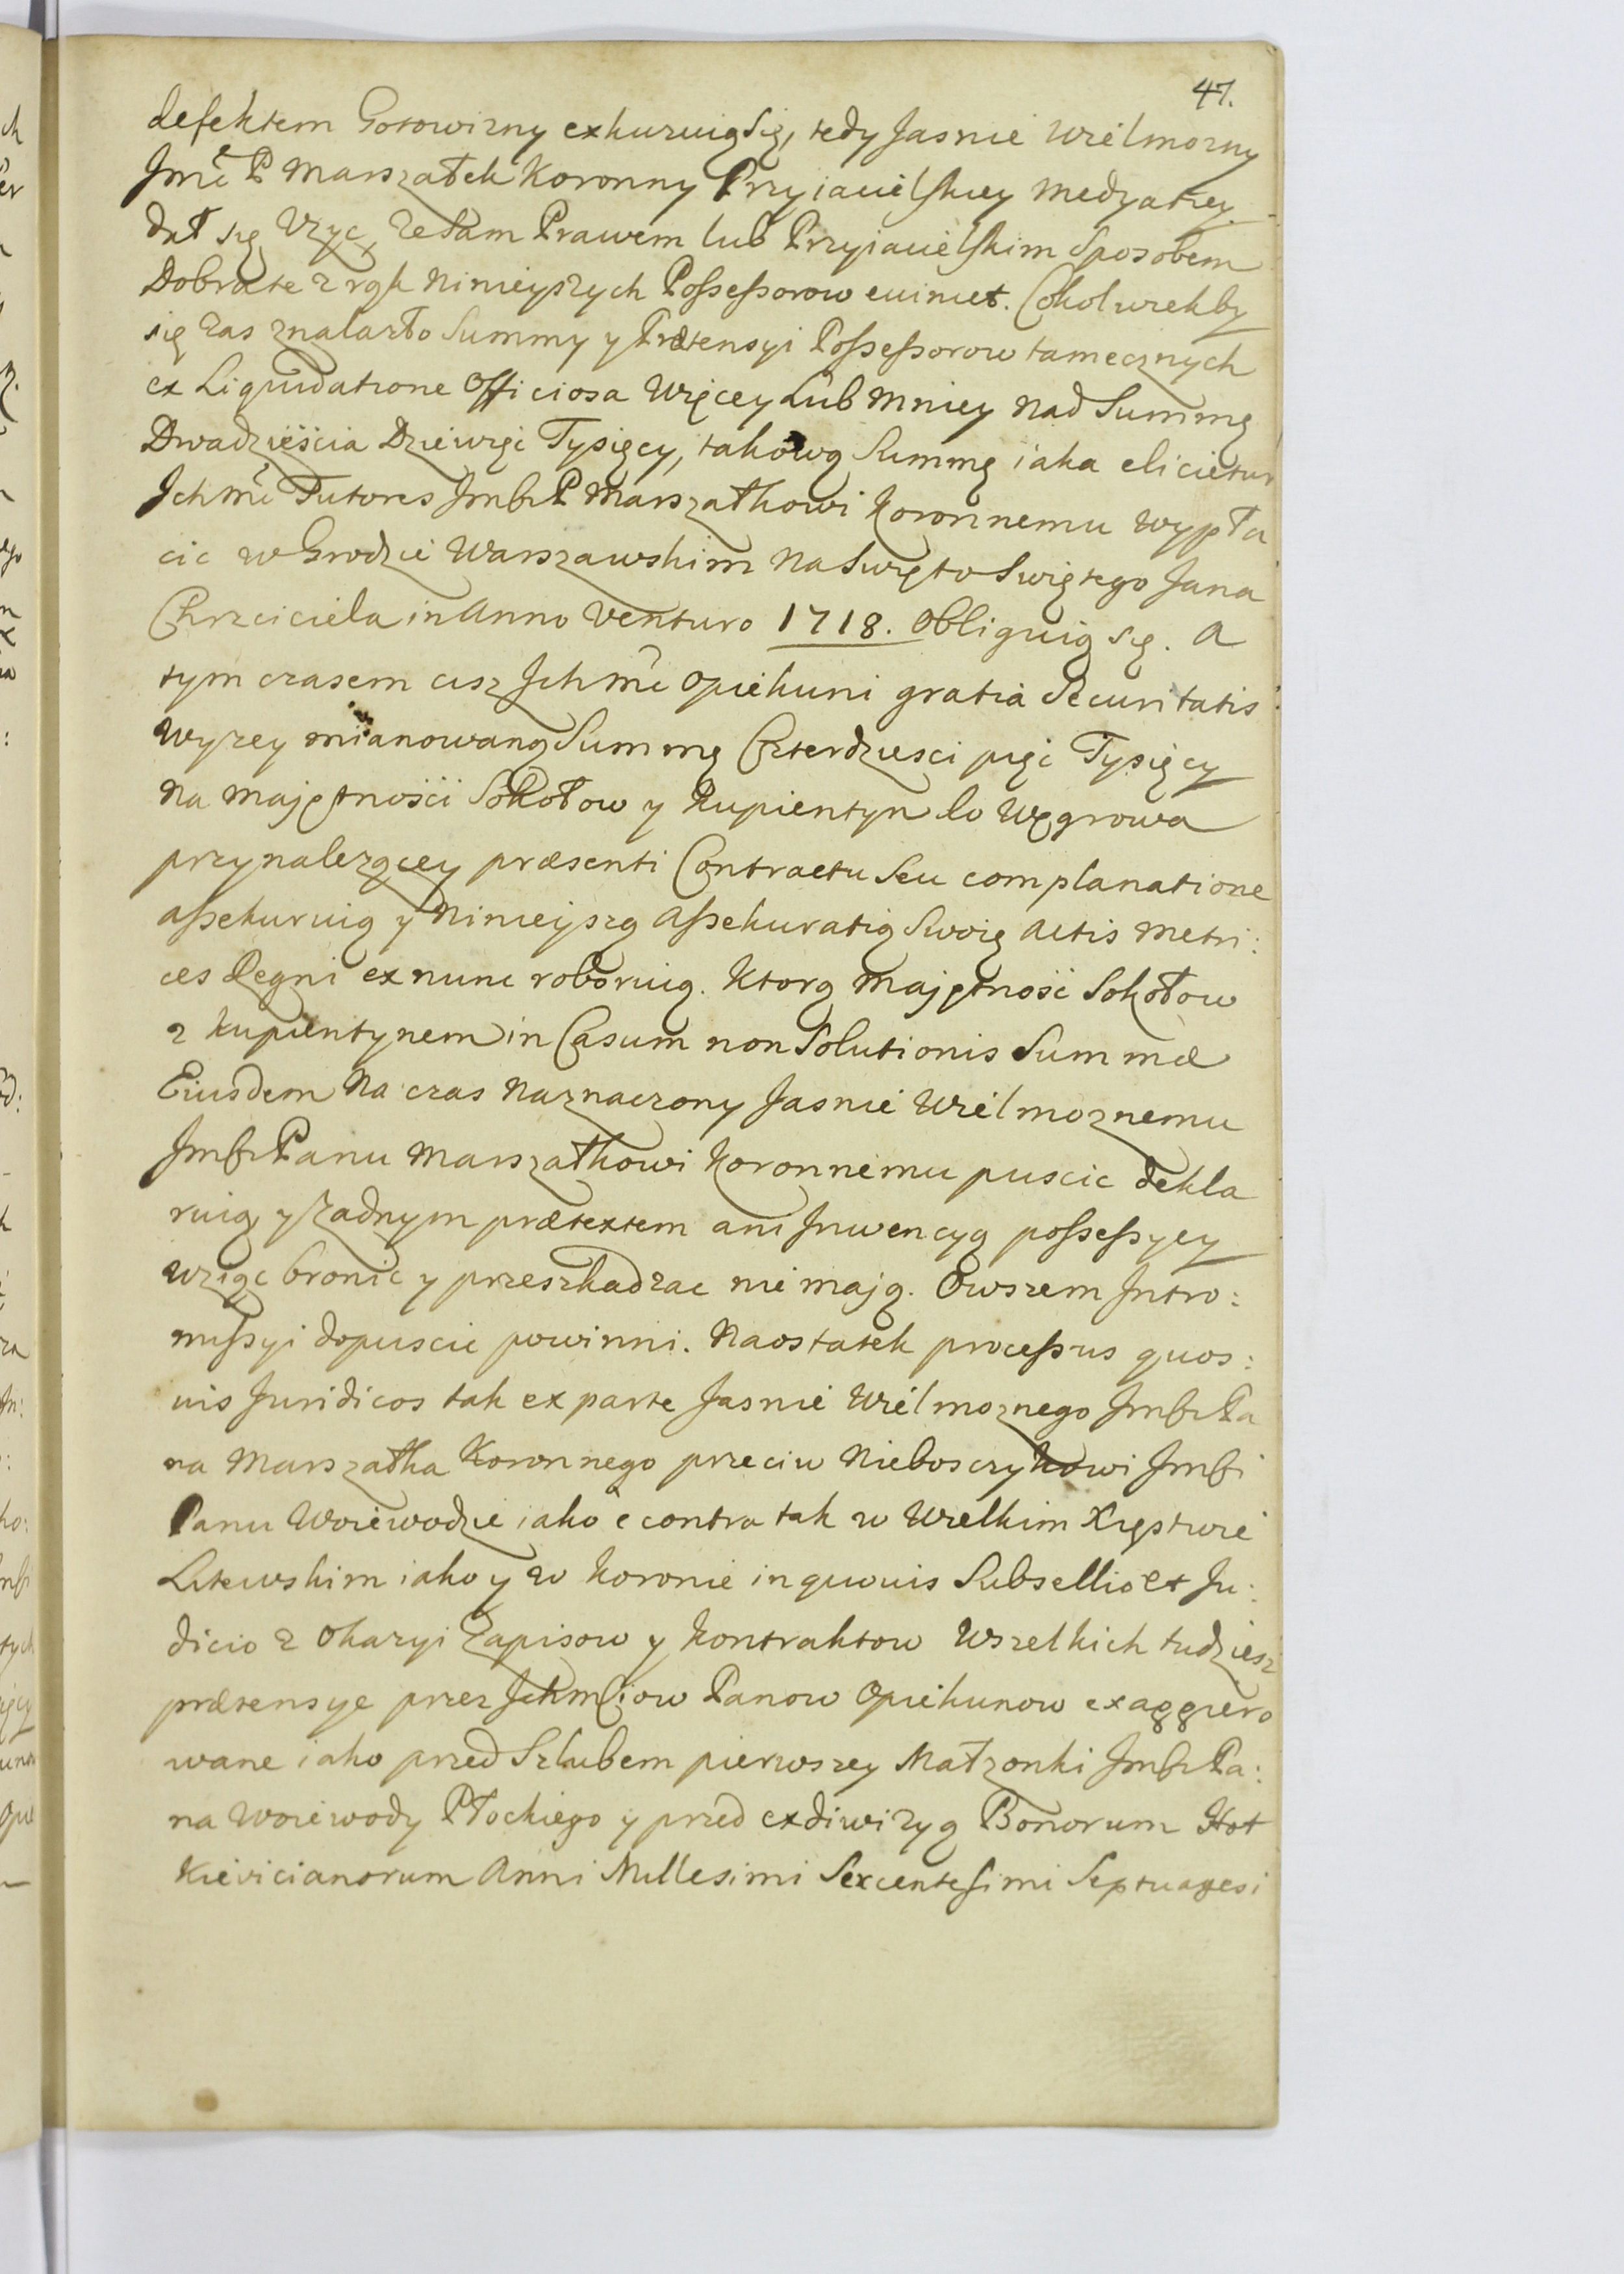 47.
defektem Gotowizny exkuzuią się, tedy Jasnie Wielmozny
Jmć P Marszałek Koronny Przyiacielskiey Medyatiey
dał się Uzyc, ze Sam Prawem lub Przyiacielskim Sposobem
Dobra te z rąk Ninieyszych Possessorow euincet. Cokolwiekby
się zas znalazło Summy y Prætensyi Possessorow tamecznych
ex Liquidatione Officiosa Więcey Lub Mniey Nad Summę
Dwadzieścia Dziewięc Tysięcy, takową Summę iaka elicietur
Ichmć Tutores Jmści P Marszałkowi Koronnemu Wypła
cic w Grodzie Warszawskim Na Swięto Swiętego Jana
Chrzciciela in Anno Venturo 1718. Obliguią się. A
tym czasem cisz Ichmć Opiekuni gratia Securitatis
Wyzey mianowaną Summę Czterdziesci pięc Tysięcy
Na Majętności Sokołow y Kupientyn do Węgrowa
przynalezącey præsenti Contractu Seu complanatione
assekuruią y Ninieyszą Assekuratią Swoię Actis Metri:
ces Regni ex nunc roboruią. Ktorą Majętność Sokołow
z Kupientynem in Casum non Solutionis Summæ
Eiusdem Na czas Naznaczony Jasnie Wielmoznemu
Jmści Panu Marszałkowi Koronnemu puscic dekla
ruią y Zadnym prætextem ani Inwencyą possessyey
wziąc bronic y przeszkadzac nie mają. Owszem Intro:
missyi dopuscic powinni. Naostatek processus quos:
uis Juridicos tak ex parte Jasnie Wielmoznego Jmści Pa
na Marszałka Koronnego przeciw Nieboszczykowi Jmści
Panu Woiewodzie iako e contra tak w Wielkim Xięstwie
Litewskim iako y w Koronie in quouis Subsellio et Ju:
dicio z Okazyi Zapisow y Kontraktow Wszelkich tudziesz
prætensye przez Ichmściow Panow Opiekunow exaggiero
wane iako przed Szlubem pierwszey Małzonki Jmści Pa:
na Woiewody Płockiego y przed exdiwizyą Bonorum Hot
Kievicianorum Anni Millesimi Sexcentesimi Septuagesi